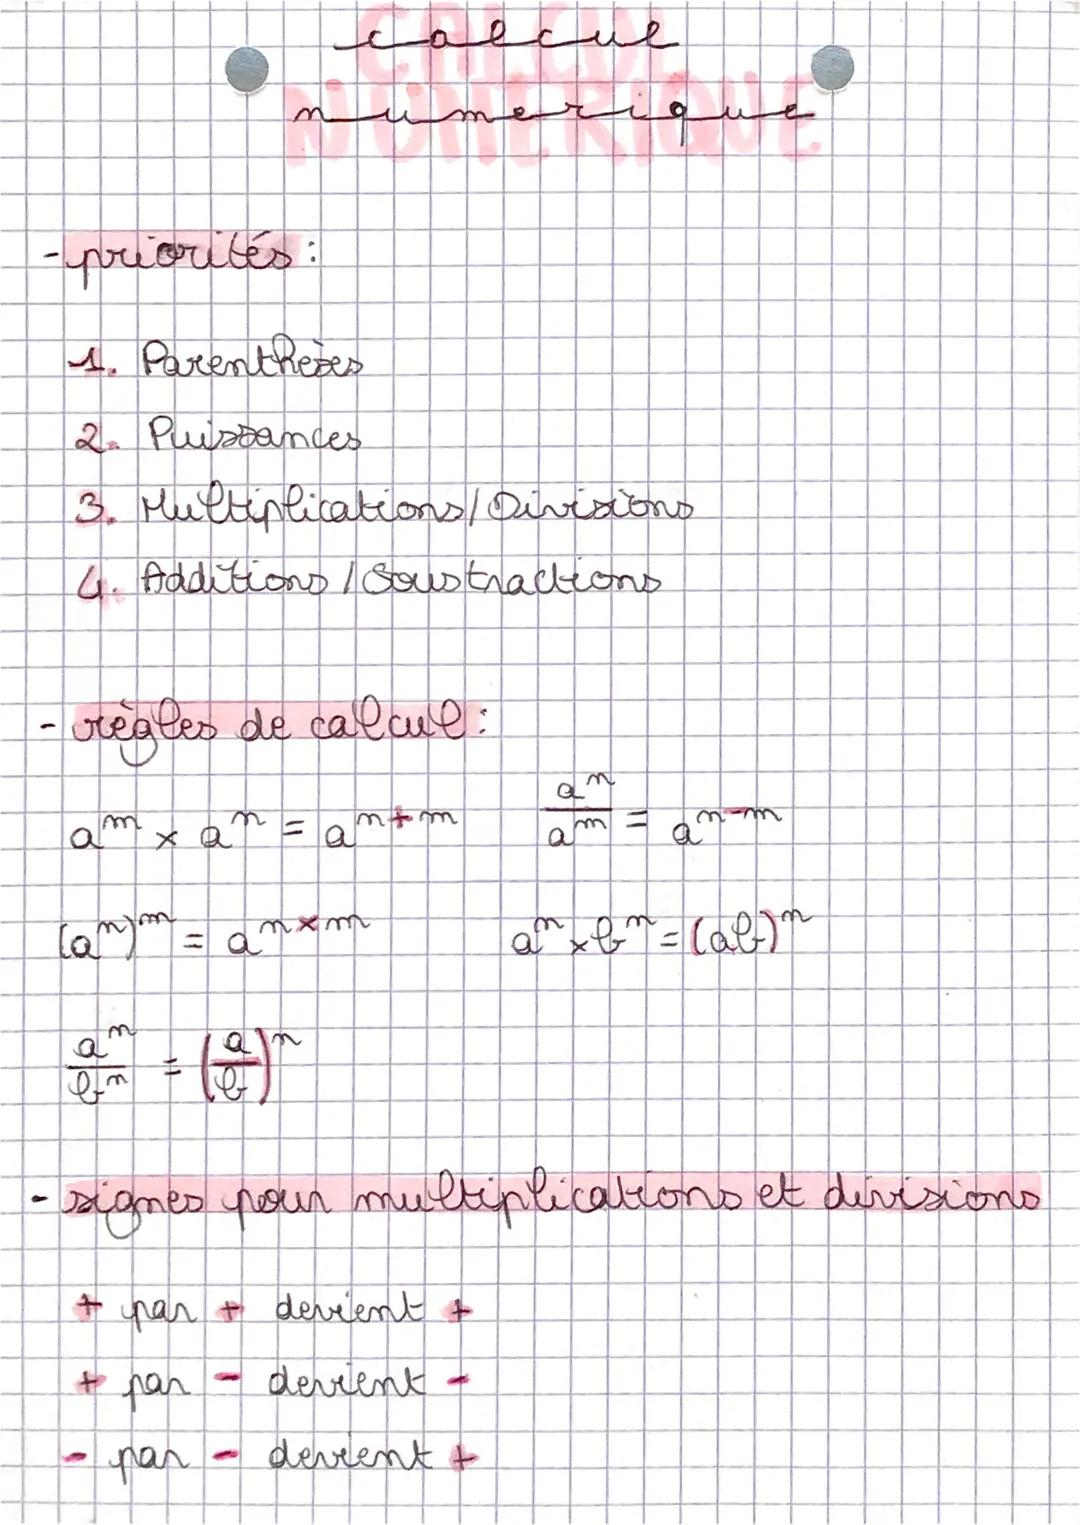 calcul
numerique
CALCUL
NUMERIQUE
- priorités :
1. Parenthèses
2. Puissances
3. Multiplications / Divisions
4. Additions / Soustractions
- règles de calcul :
a^m × a^n = a^{n+m}    \frac{a^n}{a^m} = a^{n-m}
(a^n)^m = a^{n×m}    a^n × b^n = (ab)^n
\frac{a^n}{b^n} = (\frac{a}{b})^n
- signes pour multiplications et divisions
+ par + devient +
+ par - devient -
- par - devient +